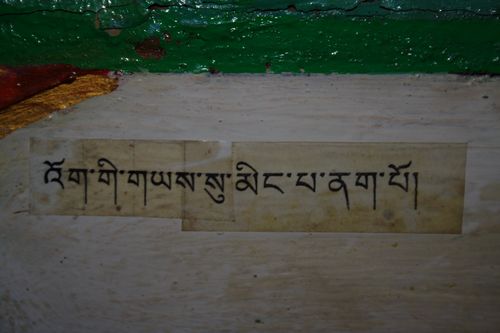 འོག་གི་གཡས་སུ་མིང་པ་ནག་པོ།